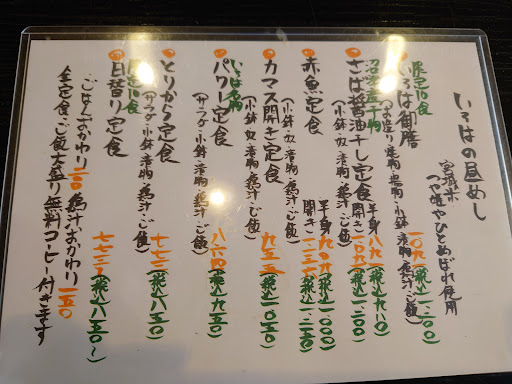 いろはの昼めし
宮城米
つや姫やひとめぼれ使用
限定10食
いろは御膳
(お造り・焼物・小鉢・漬物・鶏汁・ご飯)
(税込一、二〇〇)
沼津産干物
さば醤油干し定食
(小鉢・奴・漬物・鶏汁・ご飯)
半身 八九一(税込九八〇)
開き 一、〇九一(税込一、二〇〇)
赤魚定食
(小鉢・奴・漬物・鶏汁・ご飯)
半身 九〇九(税込一、〇〇〇)
開き 一、二三六
カマス開き定食
(小鉢・奴・漬物・鶏汁・ご飯)
九五五(税込一、〇五〇)
いろは的
パワー定食
(サラダ・小鉢・漬物・鶏汁・ご飯)
八六四(税込九五〇)
とりから定食
(サラダ・小鉢・漬物・鶏汁・ご飯)
七七三(税込八五〇)
限定10食
日替り定食
七七三(税込八五〇〜
ごはんおかわり一一〇 鶏汁おかわり一五〇
全定食・ご飯大盛り無料コーヒー付きます